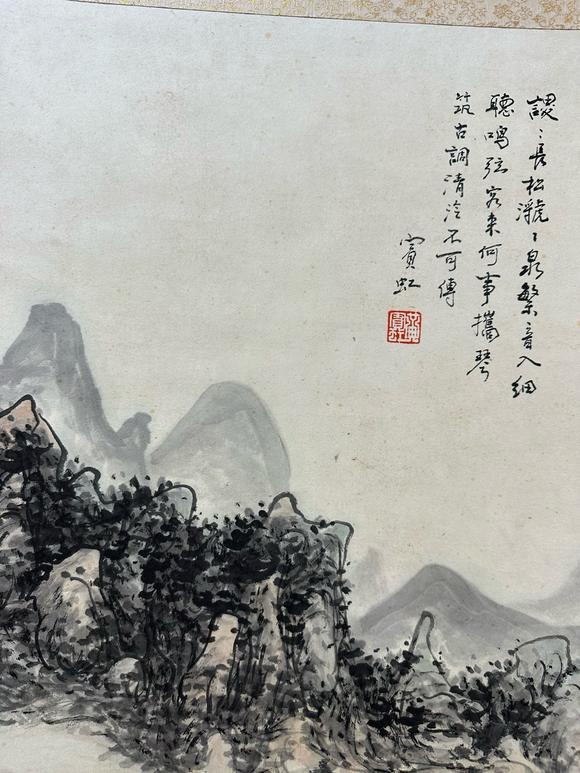 謖〻長松瀞〻泉繁音入細
聽鳴弦客來何事攜琴
筑古調清泠不可傳
賓虹
黃賓虹